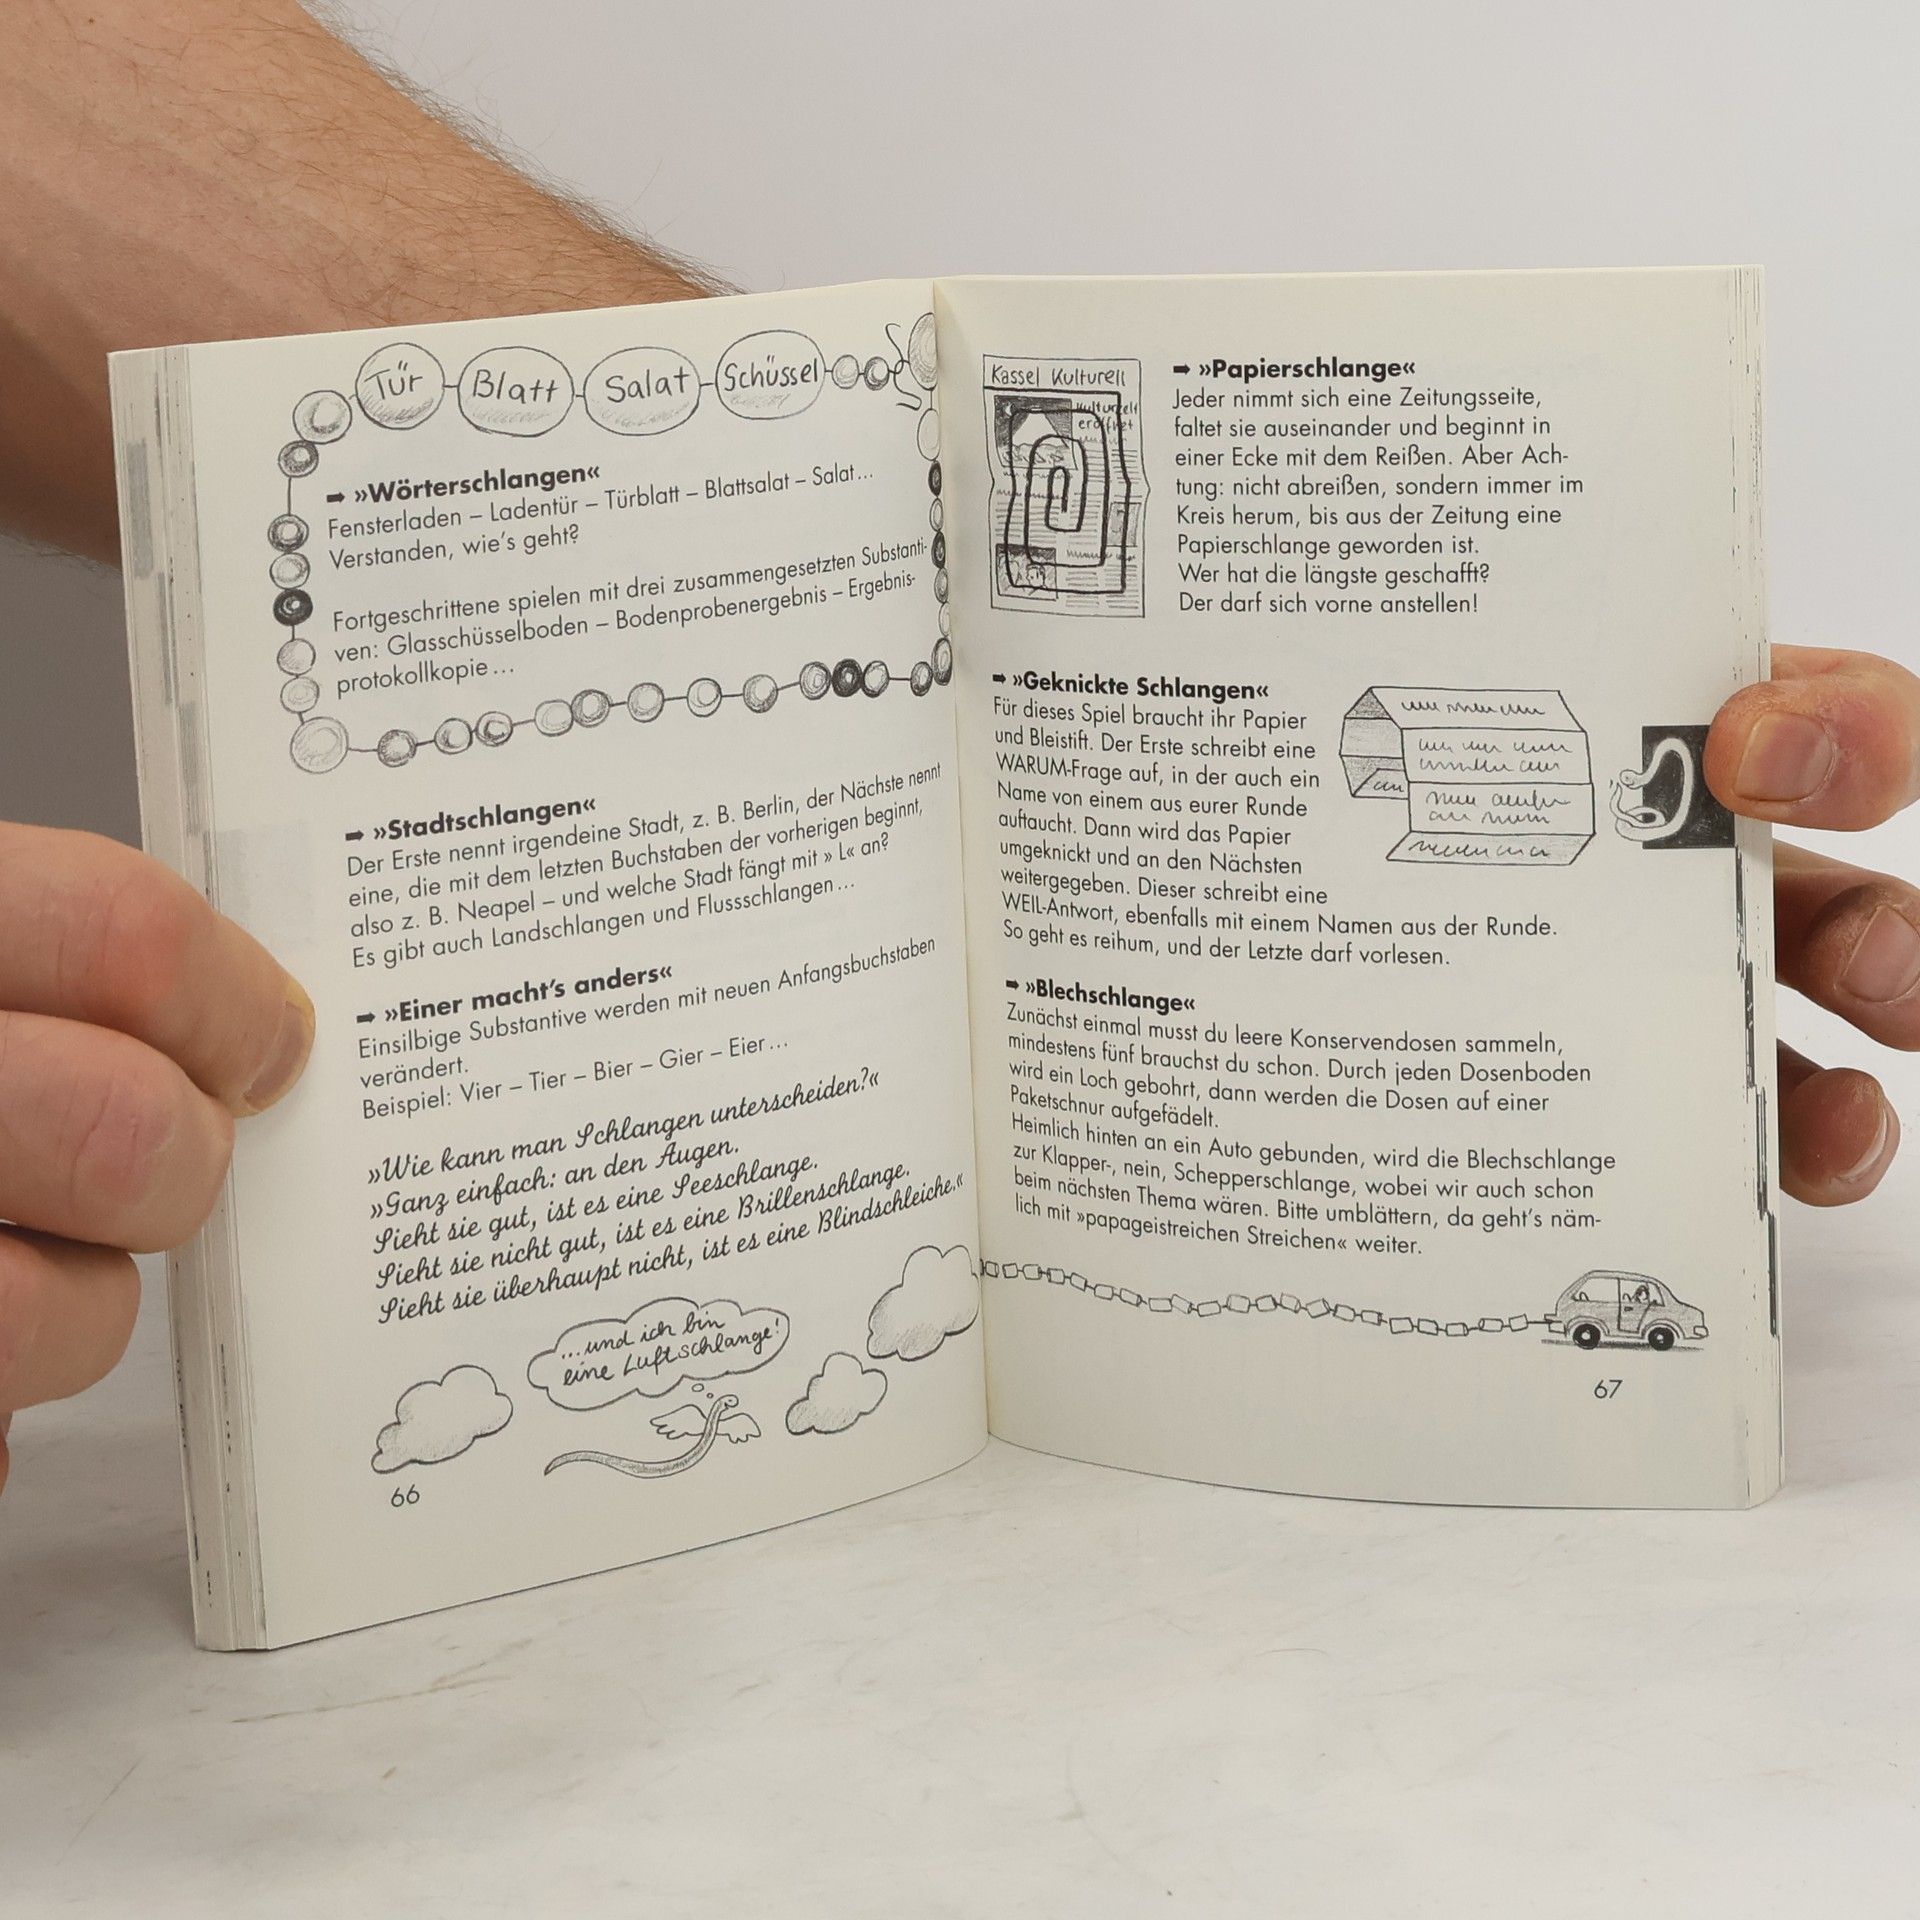 Tür
Blatt
Salat
Schüssel
➡ »Wörterschlangen«
Fensterladen – Ladentür – Türblatt – Blattsalat – Salat...
Verstanden, wie's geht?
Fortgeschrittene spielen mit drei zusammengesetzten Substanti-
ven: Glasschüsselboden – Bodenprobenergebnis – Ergebnis-
protokollkopie...
➡ »Stadtschlangen«
Der Erste nennt irgendeine Stadt, z. B. Berlin, der Nächste nennt
eine, die mit dem letzten Buchstaben der vorherigen beginnt,
also z. B. Neapel – und welche Stadt fängt mit » L« an?
Es gibt auch Landschlangen und Flussschlangen...
➡ »Einer macht's anders«
Einsilbige Substantive werden mit neuen Anfangsbuchstaben
verändert.
Beispiel: Vier – Tier – Bier – Gier – Eier...
»Wie kann man Schlangen unterscheiden?«
»Ganz einfach: an den Augen.
Sieht sie gut, ist es eine Seeschlange.
Sieht sie nicht gut, ist es eine Brillenschlange.
Sieht sie überhaupt nicht, ist es eine Blindschleiche.«
...und ich bin
eine Luftschlange!
66
Kassel Kulturell
Kulturzelt
eröffnet
➡ »Papierschlange«
Jeder nimmt sich eine Zeitungsseite,
faltet sie auseinander und beginnt in
einer Ecke mit dem Reißen. Aber Ach-
tung: nicht abreißen, sondern immer im
Kreis herum, bis aus der Zeitung eine
Papierschlange geworden ist.
Wer hat die längste geschafft?
Der darf sich vorne anstellen!
➡ »Geknickte Schlangen«
Für dieses Spiel braucht ihr Papier
und Bleistift. Der Erste schreibt eine
WARUM-Frage auf, in der auch ein
Name von einem aus eurer Runde
auftaucht. Dann wird das Papier
umgeknickt und an den Nächsten
weitergegeben. Dieser schreibt eine
WEIL-Antwort, ebenfalls mit einem Namen aus der Runde.
So geht es reihum, und der Letzte darf vorlesen.
➡ »Blechschlange«
Zunächst einmal musst du leere Konservendosen sammeln,
mindestens fünf brauchst du schon. Durch jeden Dosenboden
wird ein Loch gebohrt, dann werden die Dosen auf einer
Paketschnur aufgefädelt.
Heimlich hinten an ein Auto gebunden, wird die Blechschlange
zur Klapper-, nein, Schepperschlange, wobei wir auch schon
beim nächsten Thema wären. Bitte umblättern, da geht's näm-
lich mit »papageistreichen Streichen« weiter.
67